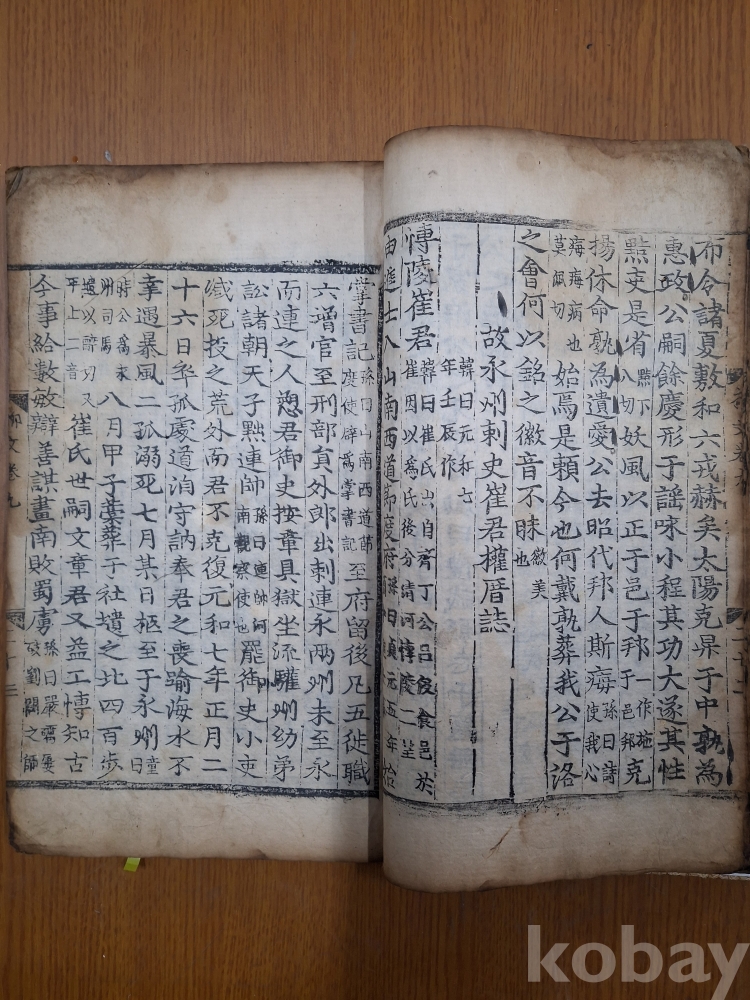 布令諸夏敷和六戎赫矣太陽克昇于中孰為
惠政公嗣餘慶形于謡咏小程其功大遂其性
黠吏是省黠下八切妖風以正于邑于邦一作施于邑邦克
揚休命孰為遺愛公去昭代邦人斯痗孫曰詩使我心
痗痗病也莫佩切始焉是頼今也何戴孰葬我公于洛
之會何以銘之徽音不昧徽美也
故永州刺史崔君權厝誌
韓曰元和七年壬辰作
博陵崔君韓曰崔氏出自齊丁公呂伋食邑於崔因以為氏後分清河博陵二望
由進士入山南西道節度府孫曰貞元五年
掌書記孫曰山南西道節度使辟為掌書記至府留後凡五徙職
六增官至刑部員外郎出刺連永兩州未至永
而連之人愬君御史按章具獄坐流驩州幼弟
訟諸朝天子黜連帥孫曰連帥湖南觀察使也罷御史小吏
咸死投之荒外而君不克復元和七年正月二
十六日卒孤處道洎守訥奉君之喪踰海水不
幸遇暴風二孤溺死七月某日柩至于永州
八月甲子藁葬于社壝之北四百歩
崔氏世嗣文章君又益工博知古
今事給數敏辯善謀畫南敗蜀虜
柳文卷九
kobay